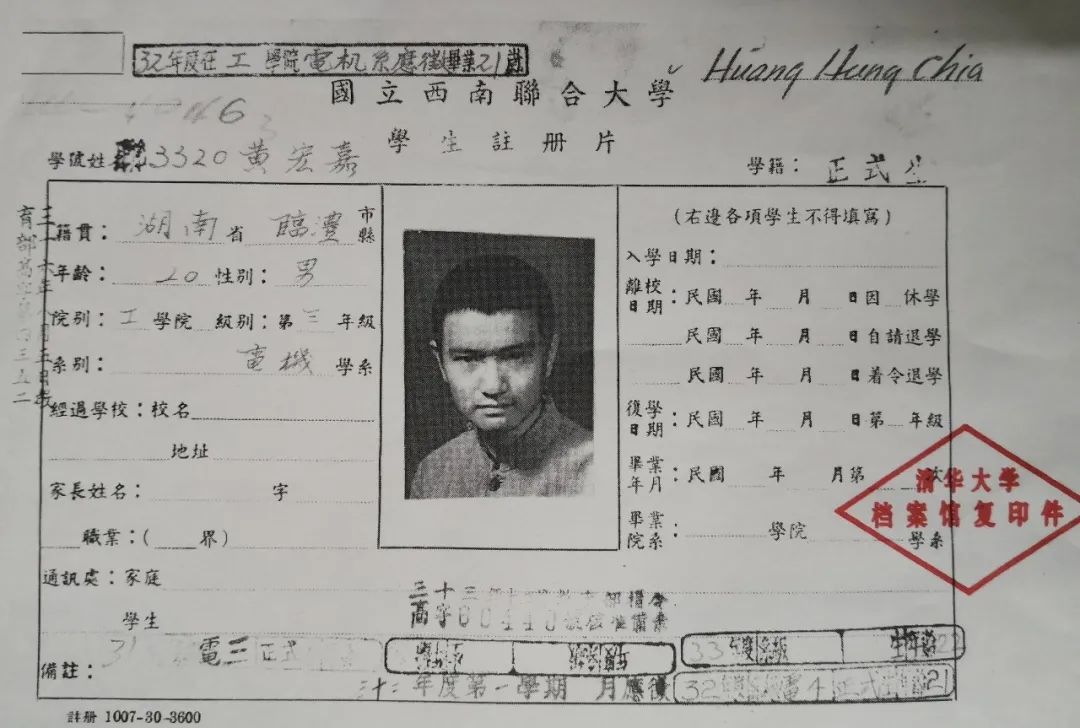 32年度在工學院電机系應徵畢業21歲
Huang Hung Chia
國立西南聯合大學
46
學生註册片
學號 姓 3320 黃宏嘉
學籍：正式生
籍貫：湖南省 臨澧 市縣
年齡：20 性別：男
院別：工學院 級別：第三年級
系別：電機學系
經過學校：校名
地址
家長姓名： 字
職業：( 界)
(右邊各項學生不得填寫)
入學日期：
離校日期：民國 年 月 日因 休學
民國 年 月 日自請退學
民國 年 月 日着令退學
復學日期：民國 年 月 日第 年級
畢業年月：民國 年 月第 次
畢業院系： 學院 學系
清华大学
档案馆复印件
通訊處：家庭
三十三
高字60440
學生
備註：31 電三正式
33年度 級 22
年度第一學期 月應徵
32 電4正式 21
註册 1007-30-3600